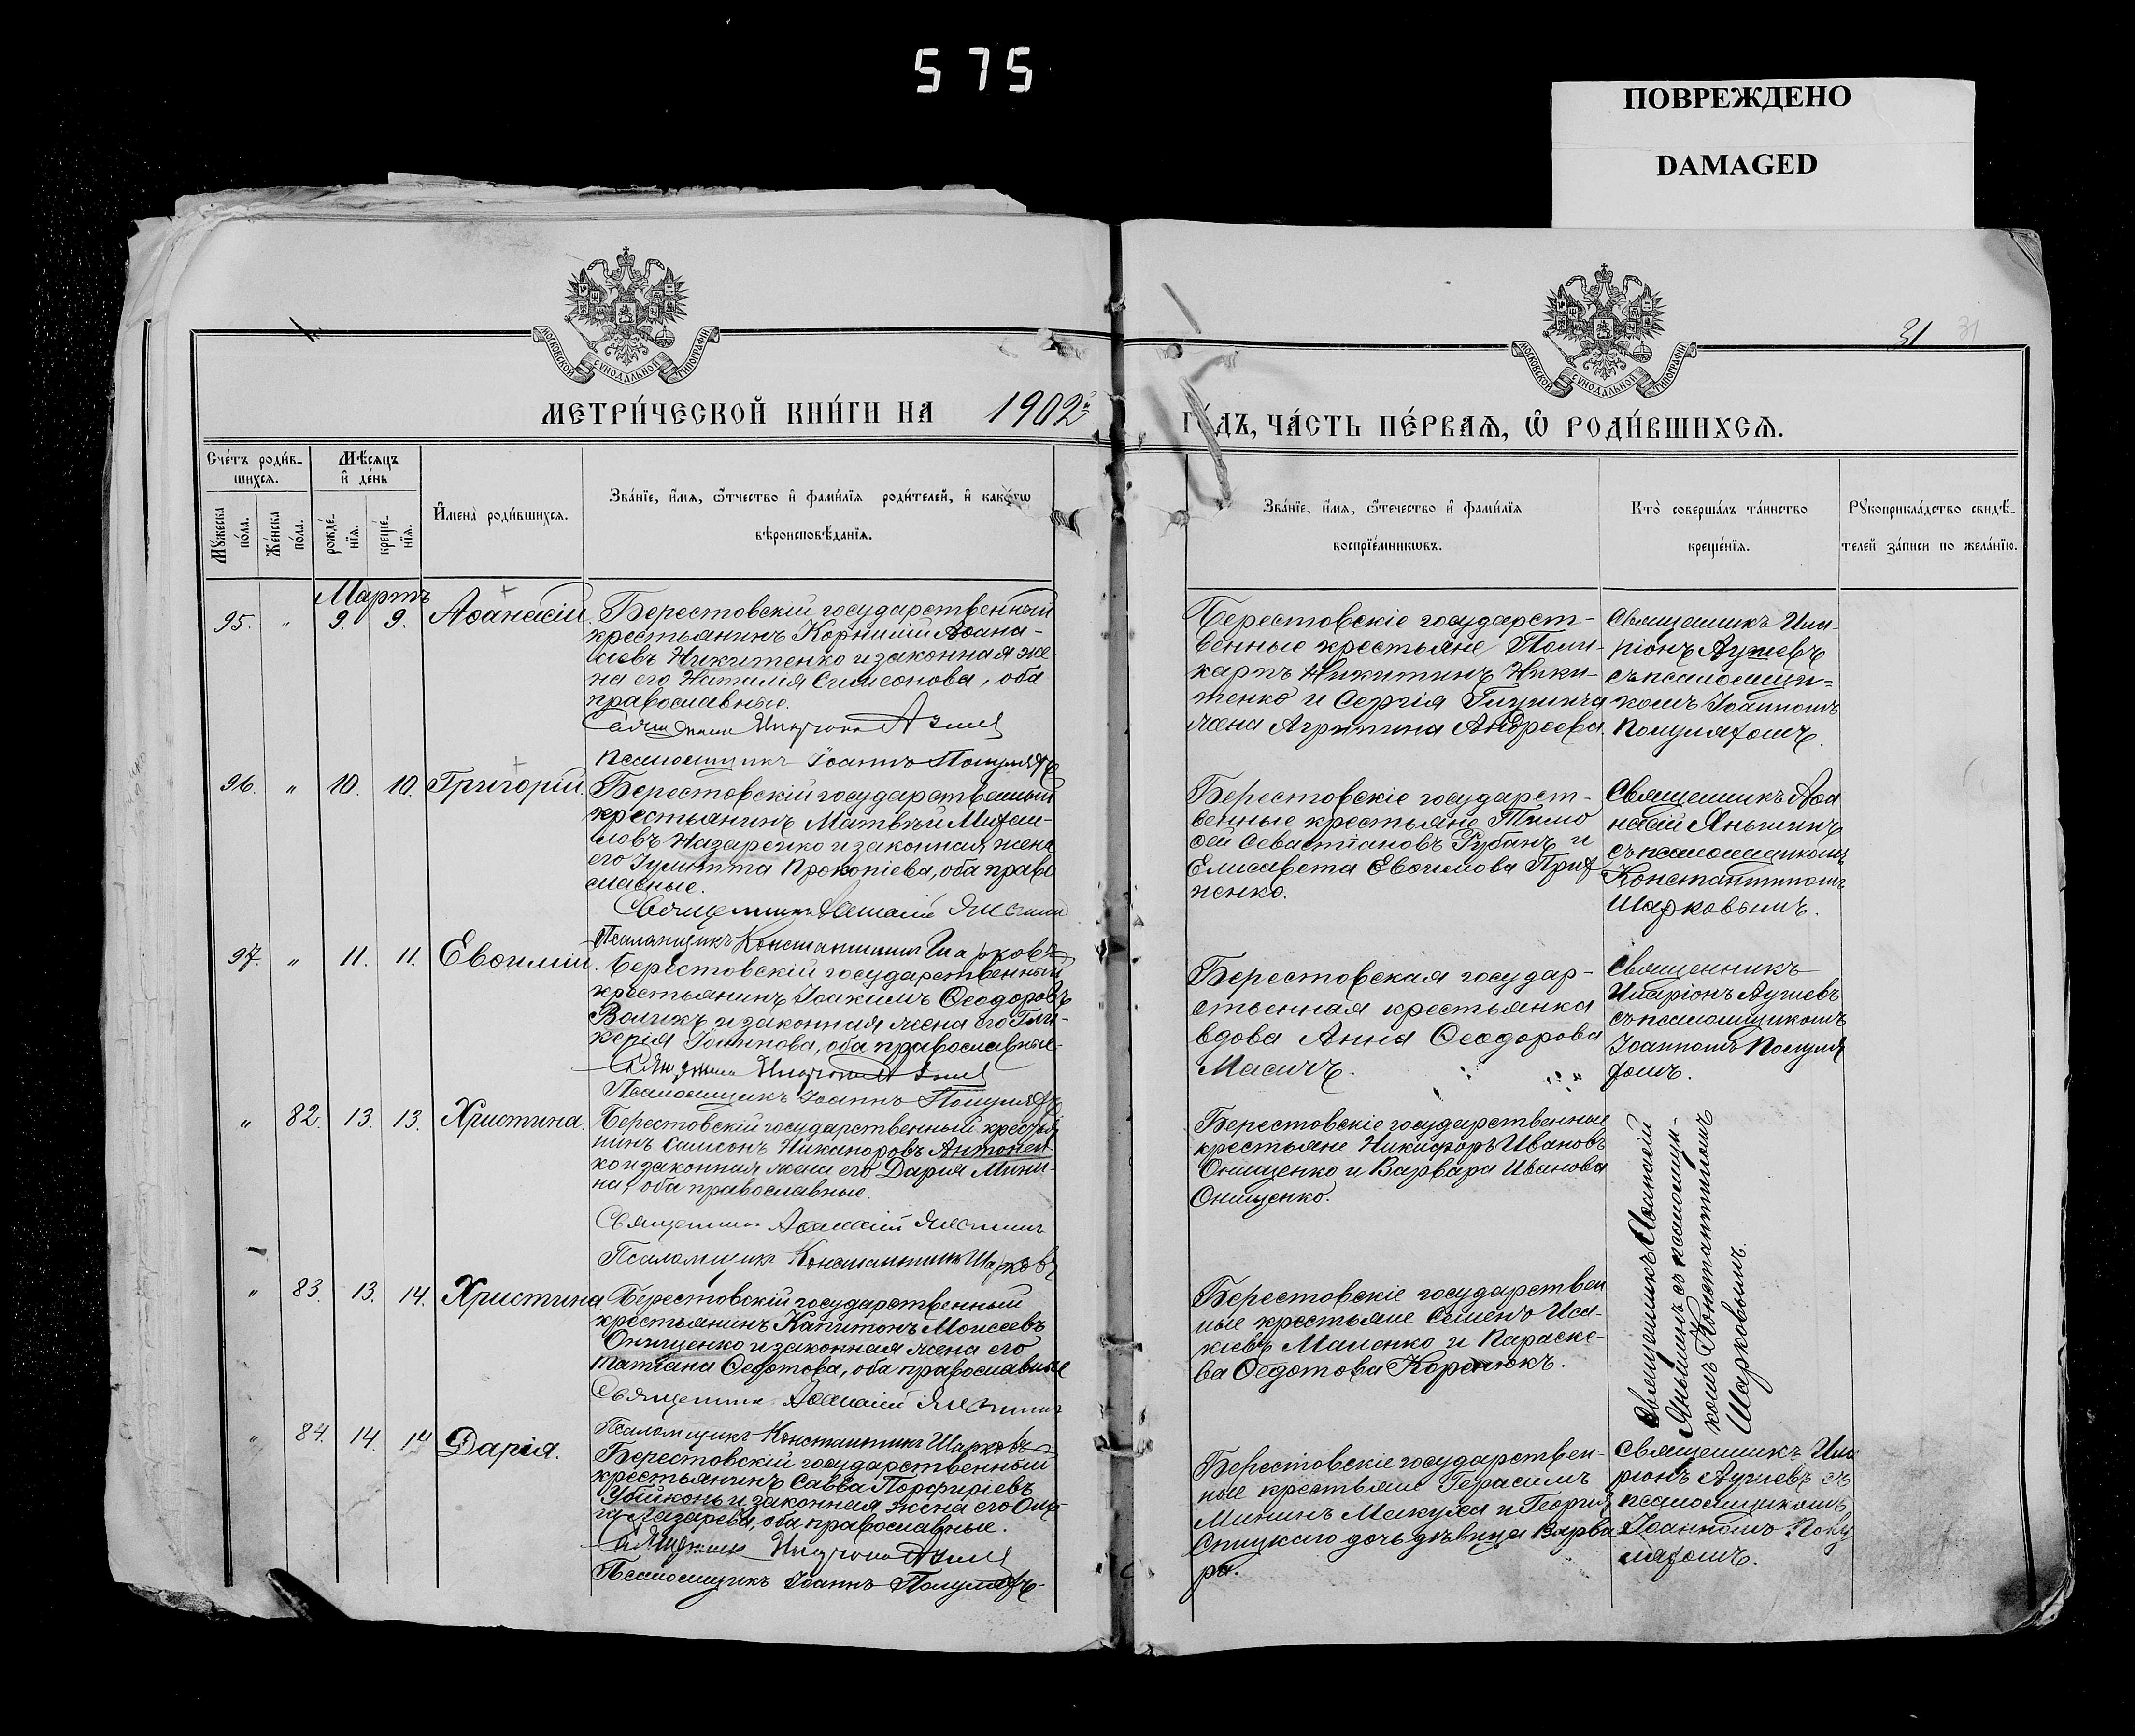 575
ПОВРЕЖДЕНО
DAMAGED
31 31
МОСКОВСКОЙ СѴНОДАЛЬНОЙ ТИПОГРАФІИ
МОСКОВСКОЙ СѴНОДАЛЬНОЙ ТИПОГРАФІИ
МЕТРИ́ЧЕСКОЙ КНИ́ГИ НА 1902й
ГО́ДЪ, ЧА́СТЬ ПЕ́РВАЯ, Ѡ РОДИ́ВШИХСЯ.
Сче́тъ роди́в-
шихся.
Му́жеска по́ла.
Же́нска по́ла.
Мѣ́сяцъ
и҆ де́нь
рожде́-
нїя.
креще́-
нїя.
И҆мена̀ роди́вшихся.
Зва́нїе, и҆́мя, ѻ҆́тчество и҆ фами́лїя роди́телей, и҆ како́гѡ
вѣроисповѣ́данїя.
Зва́нїе, и҆́мя, ѻ҆́течество и҆ фами́лїя
воспрїе́мникωвъ.
Кто̀ соверша́лъ та́инство
креще́нїя.
Рꙋкоприкла́дство свидѣ́-
телей за́писи по жела́нїю.
Мартъ
95. " 9. 9. Аѳанасій.
Берестовскій государственный
крестьянинъ Корнилій Аѳана-
сіевъ Никитенко и законная же-
на его Наталія Симеонова, оба
православные.
Священникъ Иларіонъ
Псаломщикъ Іоаннъ Полуляхъ
Берестовскіе государст-
венные крестьяне Поли-
карпъ Никитинъ Ники-
тенко и Сергія
жена Агрипина Андреева.
Священникъ Ила-
ріонъ
съ псаломщи-
комъ Іоанномъ
Полуляхомъ.
96. " 10. 10. Григорій.
Берестовскій государственный
крестьянинъ Матвѣй Михаи-
ловъ Назаренко и законная жена
его Іулитта Прокопіева, оба право
славные.
Священникъ Аѳанасій Яньшинъ
Псаломщикъ Константинъ Шарковъ
Берестовскіе государст-
венные крестьяне Тимо
ѳей Севастіановъ Рубанъ и
Елисавета Евѳимова Прих
ненко.
Священникъ Аѳа
насій Яньшинъ
съ псаломщикомъ
Константиномъ
Шарковымъ.
97. " 11. 11. Евѳимій.
Берестовскій государственный
крестьянинъ Іоакимъ Ѳеодоровъ
Воликъ и законная жена его Гли-
керія Іоаннова, оба православные.
Священникъ Иларіонъ
Псаломщикъ Іоаннъ Полуляхъ
Берестовская государ-
ственная крестьянка
вдова Анна Ѳеодорова
Масичъ.
Священникъ
Иларіонъ
съ псаломщикомъ
Іоанномъ Полуля
хомъ.
" 82. 13. 13. Христина.
Берестовскій государственный крестья
нинъ Самсонъ Никаноровъ Антонен-
ко и законная жена его Дарія Мини-
на, оба православные.
Священникъ Аѳанасій Яньшинъ
Псаломщикъ Константинъ Шарковъ
Берестовскіе государственные
крестьяне Никифоръ Ивановъ
Онищенко и Варвара Иванова
Онищенко.
Священникъ Аѳанасій
Яньшинъ съ псаломщи-
комъ Константиномъ
Шарковымъ.
" 83. 13. 14. Христина
Берестовскій государственный
крестьянинъ Капитонъ Моисеевъ
Онищенко и законная жена его
Татіана Ѳедотова, оба православные
Священникъ Аѳанасій Яньшинъ
Псаломщикъ Константинъ Шарковъ
Берестовскіе государствен
ные крестьяне Семенъ Иса-
кіевъ Маленко и Параске-
ва Ѳедотова Коренюкъ.
" 84. 14. 14 Дарія.
Берестовскій государственный
крестьянинъ Савва Порфиріевъ
Убийконь и законная жена его Оль-
га Лазарева, оба православные.
Священникъ Иларіонъ
Псаломщикъ Іоаннъ Полуляхъ
Берестовскіе государствен-
ные крестьяне Герасимъ
Мининъ Макуха и Георгія
Спицкаго дочь дѣвица Варва
ра.
Священникъ Ила
ріонъ съ
псаломщикомъ
Іоанномъ Полу
ляхомъ.